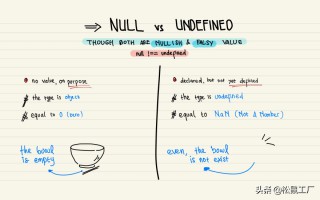 ⇒ NULL vs UNDEFINED
THOUGH BOTH ARE NULLISH & FALSY VALUE
null !== undefined
no value, on purpose
the type is object
equal to 0 (zero)
the bowl
is empty
declared, but not yet defined
the type is undefined
equal to NaN (Not A Number)
even, the bowl
is not exist
头条 @松鼠工厂